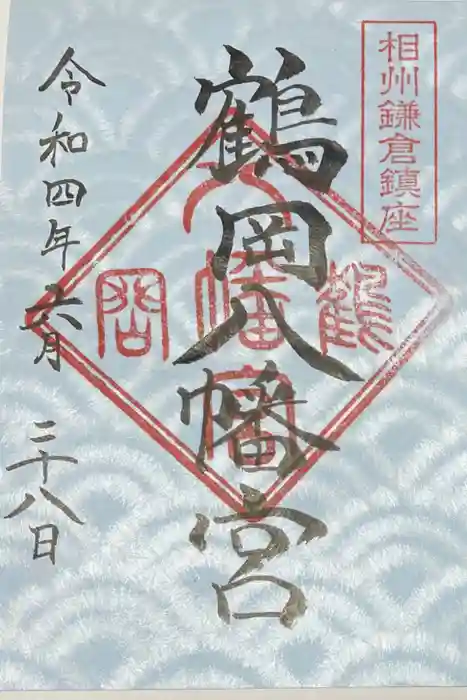 相州鎌倉鎮座
鶴岡八幡宮
鶴岡八幡宮
令和四年六月二十八日